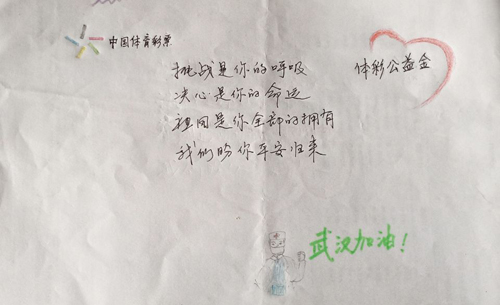 中国体育彩票
体彩公益金
挑战是你的呼吸
决心是你的命运
祖国是你全部的拥有
我们盼你平安归来
武汉加油！